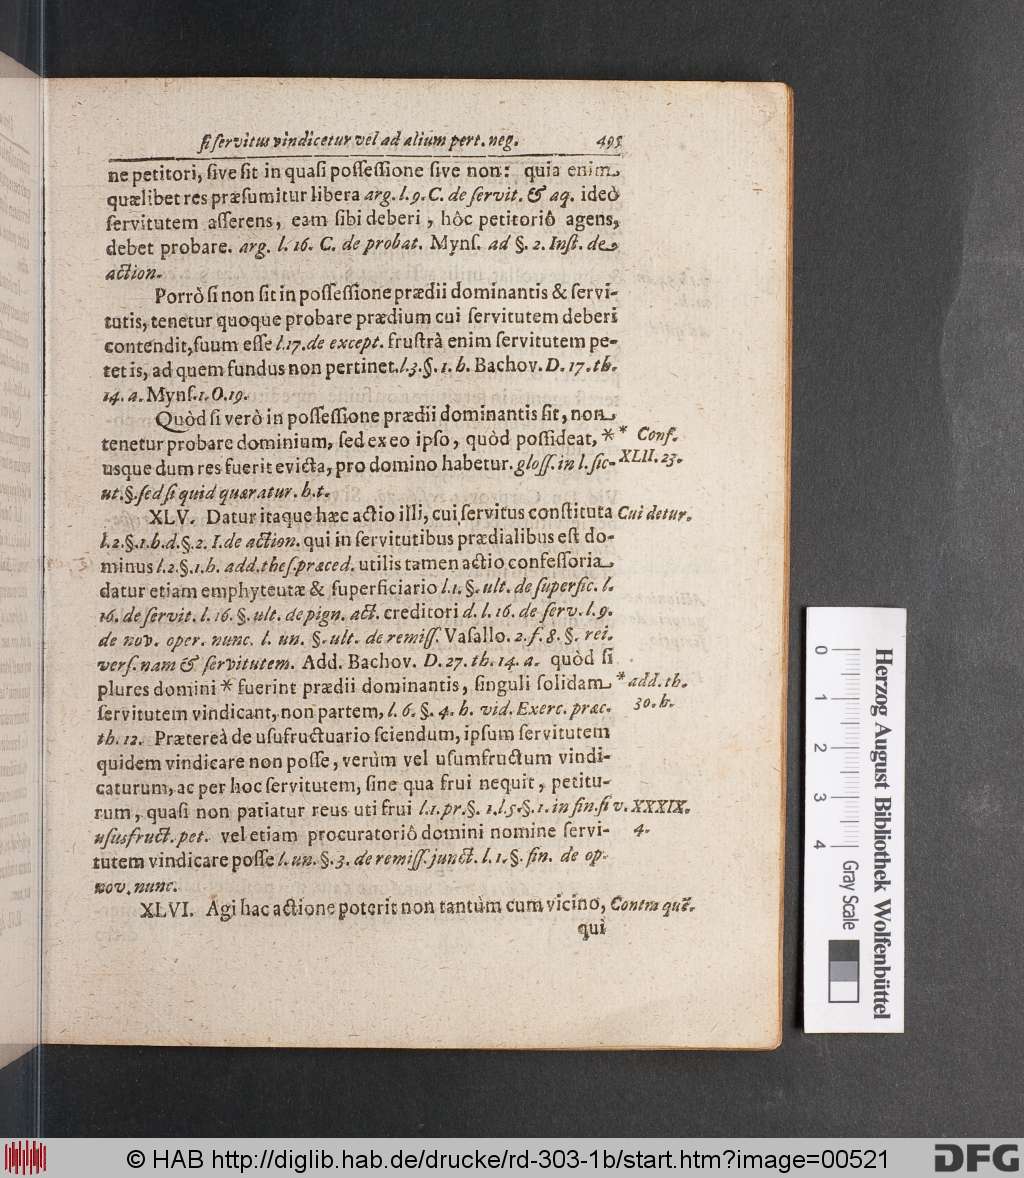 si servitus vindicetur vel ad alium pert. neg. 495
ne petitori, sive sit in quasi possessione sive non: quia enim
quælibet res præsumitur libera arg. l. 9. C. de servit. & aq. ideò
servitutem asserens, eam sibi deberi, hôc petitoriô agens,
debet probare. arg. l. 16. C. de probat. Myns. ad §. 2. Inst. de
action.
Porrò si non sit in possessione prædii dominantis & servi-
tutis, tenetur quoque probare prædium cui servitutem deberi
contendit, suum esse l. 17. de except. frustrà enim servitutem pe-
tet is, ad quem fundus non pertinet. l. 3. §. 1. h. Bachov. D. 17. th.
14. a. Myns. 1. O. 19.
Quòd si verò in possessione prædii dominantis sit, non
tenetur probare dominium, sed ex eo ipso, quòd possideat, *
* Conf.
usque dum res fuerit evicta, pro domino habetur. gloss. in l. sic-
XLII. 23.
ut. §. sed si quid quæratur. h. t.
XLV. Datur itaque hæc actio illi, cui servitus constituta
Cui detur.
l. 2. §. 1. h. d. §. 2. I. de action. qui in servitutibus prædialibus est do-
minus l. 2. §. 1. h. add. thes. præced. utilis tamen actio confessoria
datur etiam emphyteutæ & superficiario l. 1. §. ult. de superfic. l.
16. de servit. l. 16. §. ult. de pign. act. creditori d. l. 16. de serv. l. 9.
de nov. oper. nunc. l. un. §. ult. de remiss. Vasallo. 2. f. 8. §. rei.
vers. nam & servitutem. Add. Bachov. D. 27. th. 14. a. quòd si
plures domini * fuerint prædii dominantis, singuli solidam
* add. th.
servitutem vindicant, non partem, l. 6. §. 4. h. vid. Exerc. præc.
30. h.
th. 12. Prætereà de usufructuario sciendum, ipsum servitutem
quidem vindicare non posse, verùm vel usumfructum vindi-
caturum, ac per hoc servitutem, sine qua frui nequit, petitu-
rum, quasi non patiatur reus uti frui l. 1. pr. §. 1. l. 5. §. 1. in fin. si
v. XXXIX.
ususfruct. pet. vel etiam procuratoriô domini nomine servi-
4.
tutem vindicare posse l. un. §. 3. de remiss. junct. l. 1. §. fin. de op.
nov. nunc.
XLVI. Agi hac actione poterit non tantùm cum vicino,
Contra quē.
qui
0 1 2 3 4
Gray Scale
Herzog August Bibliothek Wolfenbüttel
© HAB http://diglib.hab.de/drucke/rd-303-1b/start.htm?image=00521
DFG